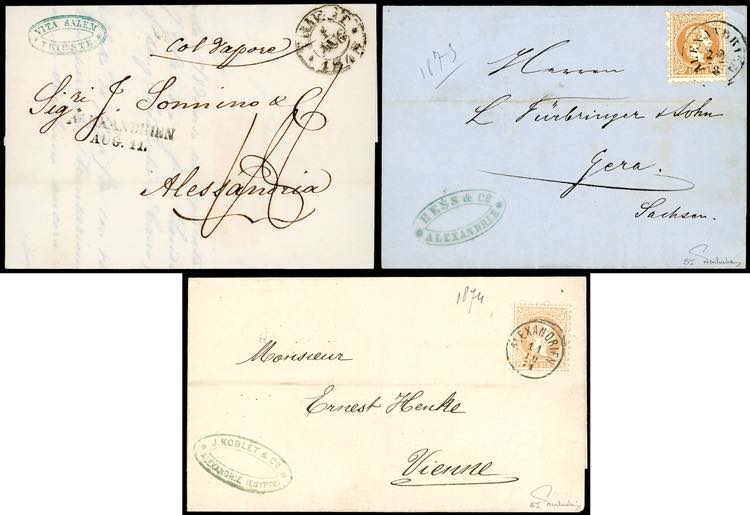 VITA SALEM
TRIESTE
TRIEST
AUG.
Col Vapore
Sigri J. Sonnino & C
ALEXANDRIEN
AUG. 11.
Alessandria
1875
ALEXANDRIEN
Herren
L Fürbringer & Sohn
Gera.
Sachsen.
HESS & CE
ALEXANDRIE
1874
ALEXANDRIEN
11
10
74
Monsieur
Ernest Henke
Vienne
J. KOBLET & CE
ALEXANDRIE (EGYPTE)